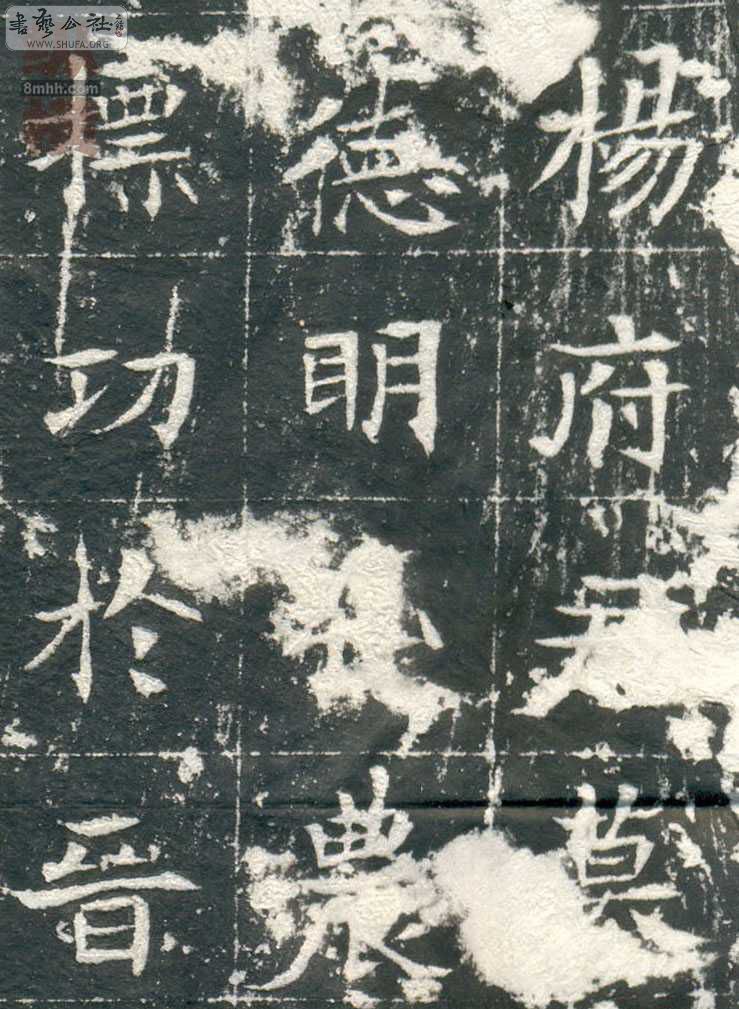 楊府君
德明農
標功於晉
書藝公社
WWW.SHUFA.ORG
8mhh.com